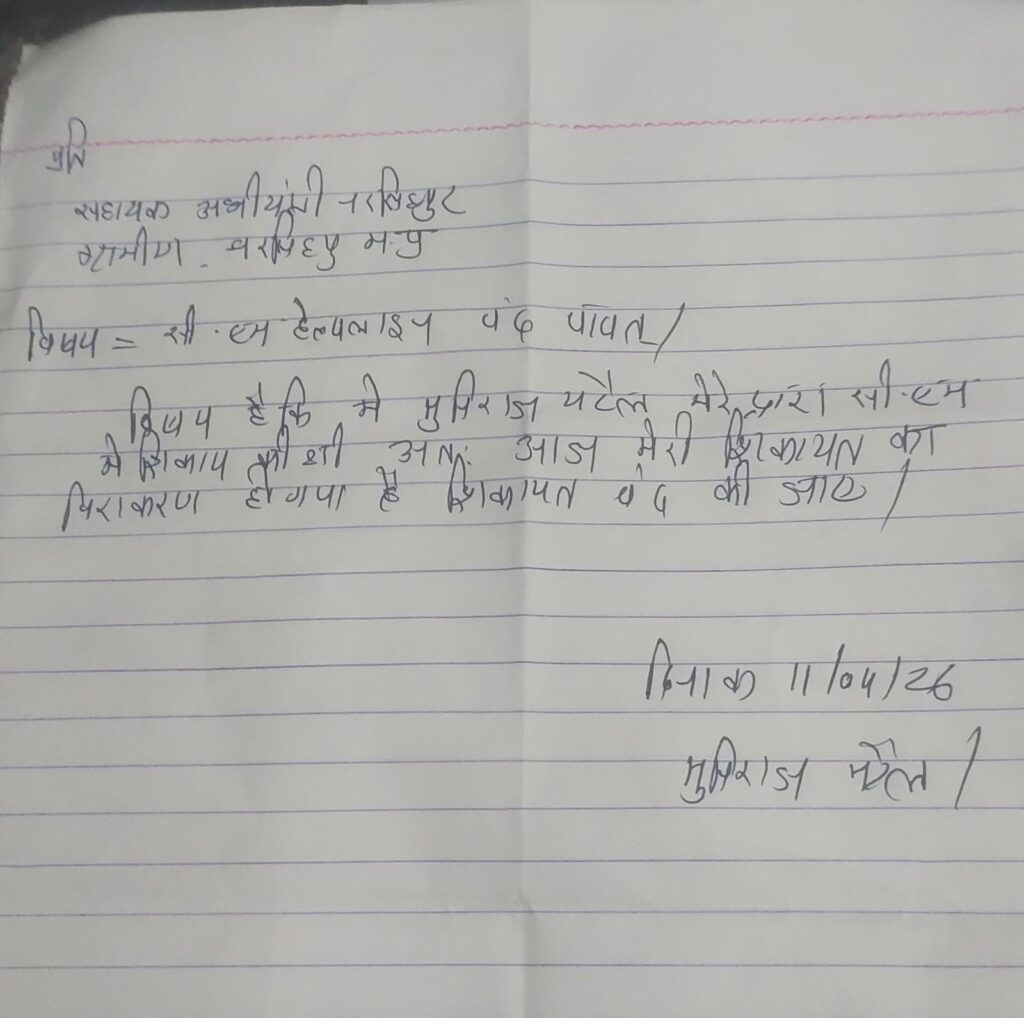 प्रति
सहायक अभीयंत्री नरसिहपुर
ग्रामीण. नरसिहपु म.प्र
विषय = सी.एम हेल्पलाइन बंद बावत/
विषय है कि मे मुनिराज पटैल मेरे द्वारा सी.एम
मे शिकाय की थी अतः आज मेरी शिकायत का
निराकरण हो गया है शिकायत बंद की जाए/
दिनाक 11/04/26
मुनिराज पटैल/